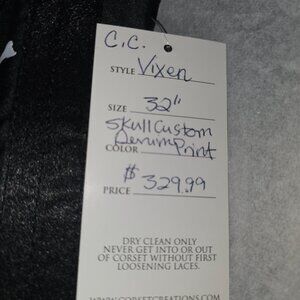 C.C.
STYLE Vixen
SIZE 32"
Skull Custom
Denim Print
COLOR
PRICE $329.99
DRY CLEAN ONLY
NEVER GET INTO OR OUT
OF CORSET WITHOUT FIRST
LOOSENING LACES.
WWW.CORSETCREATIONS.COM